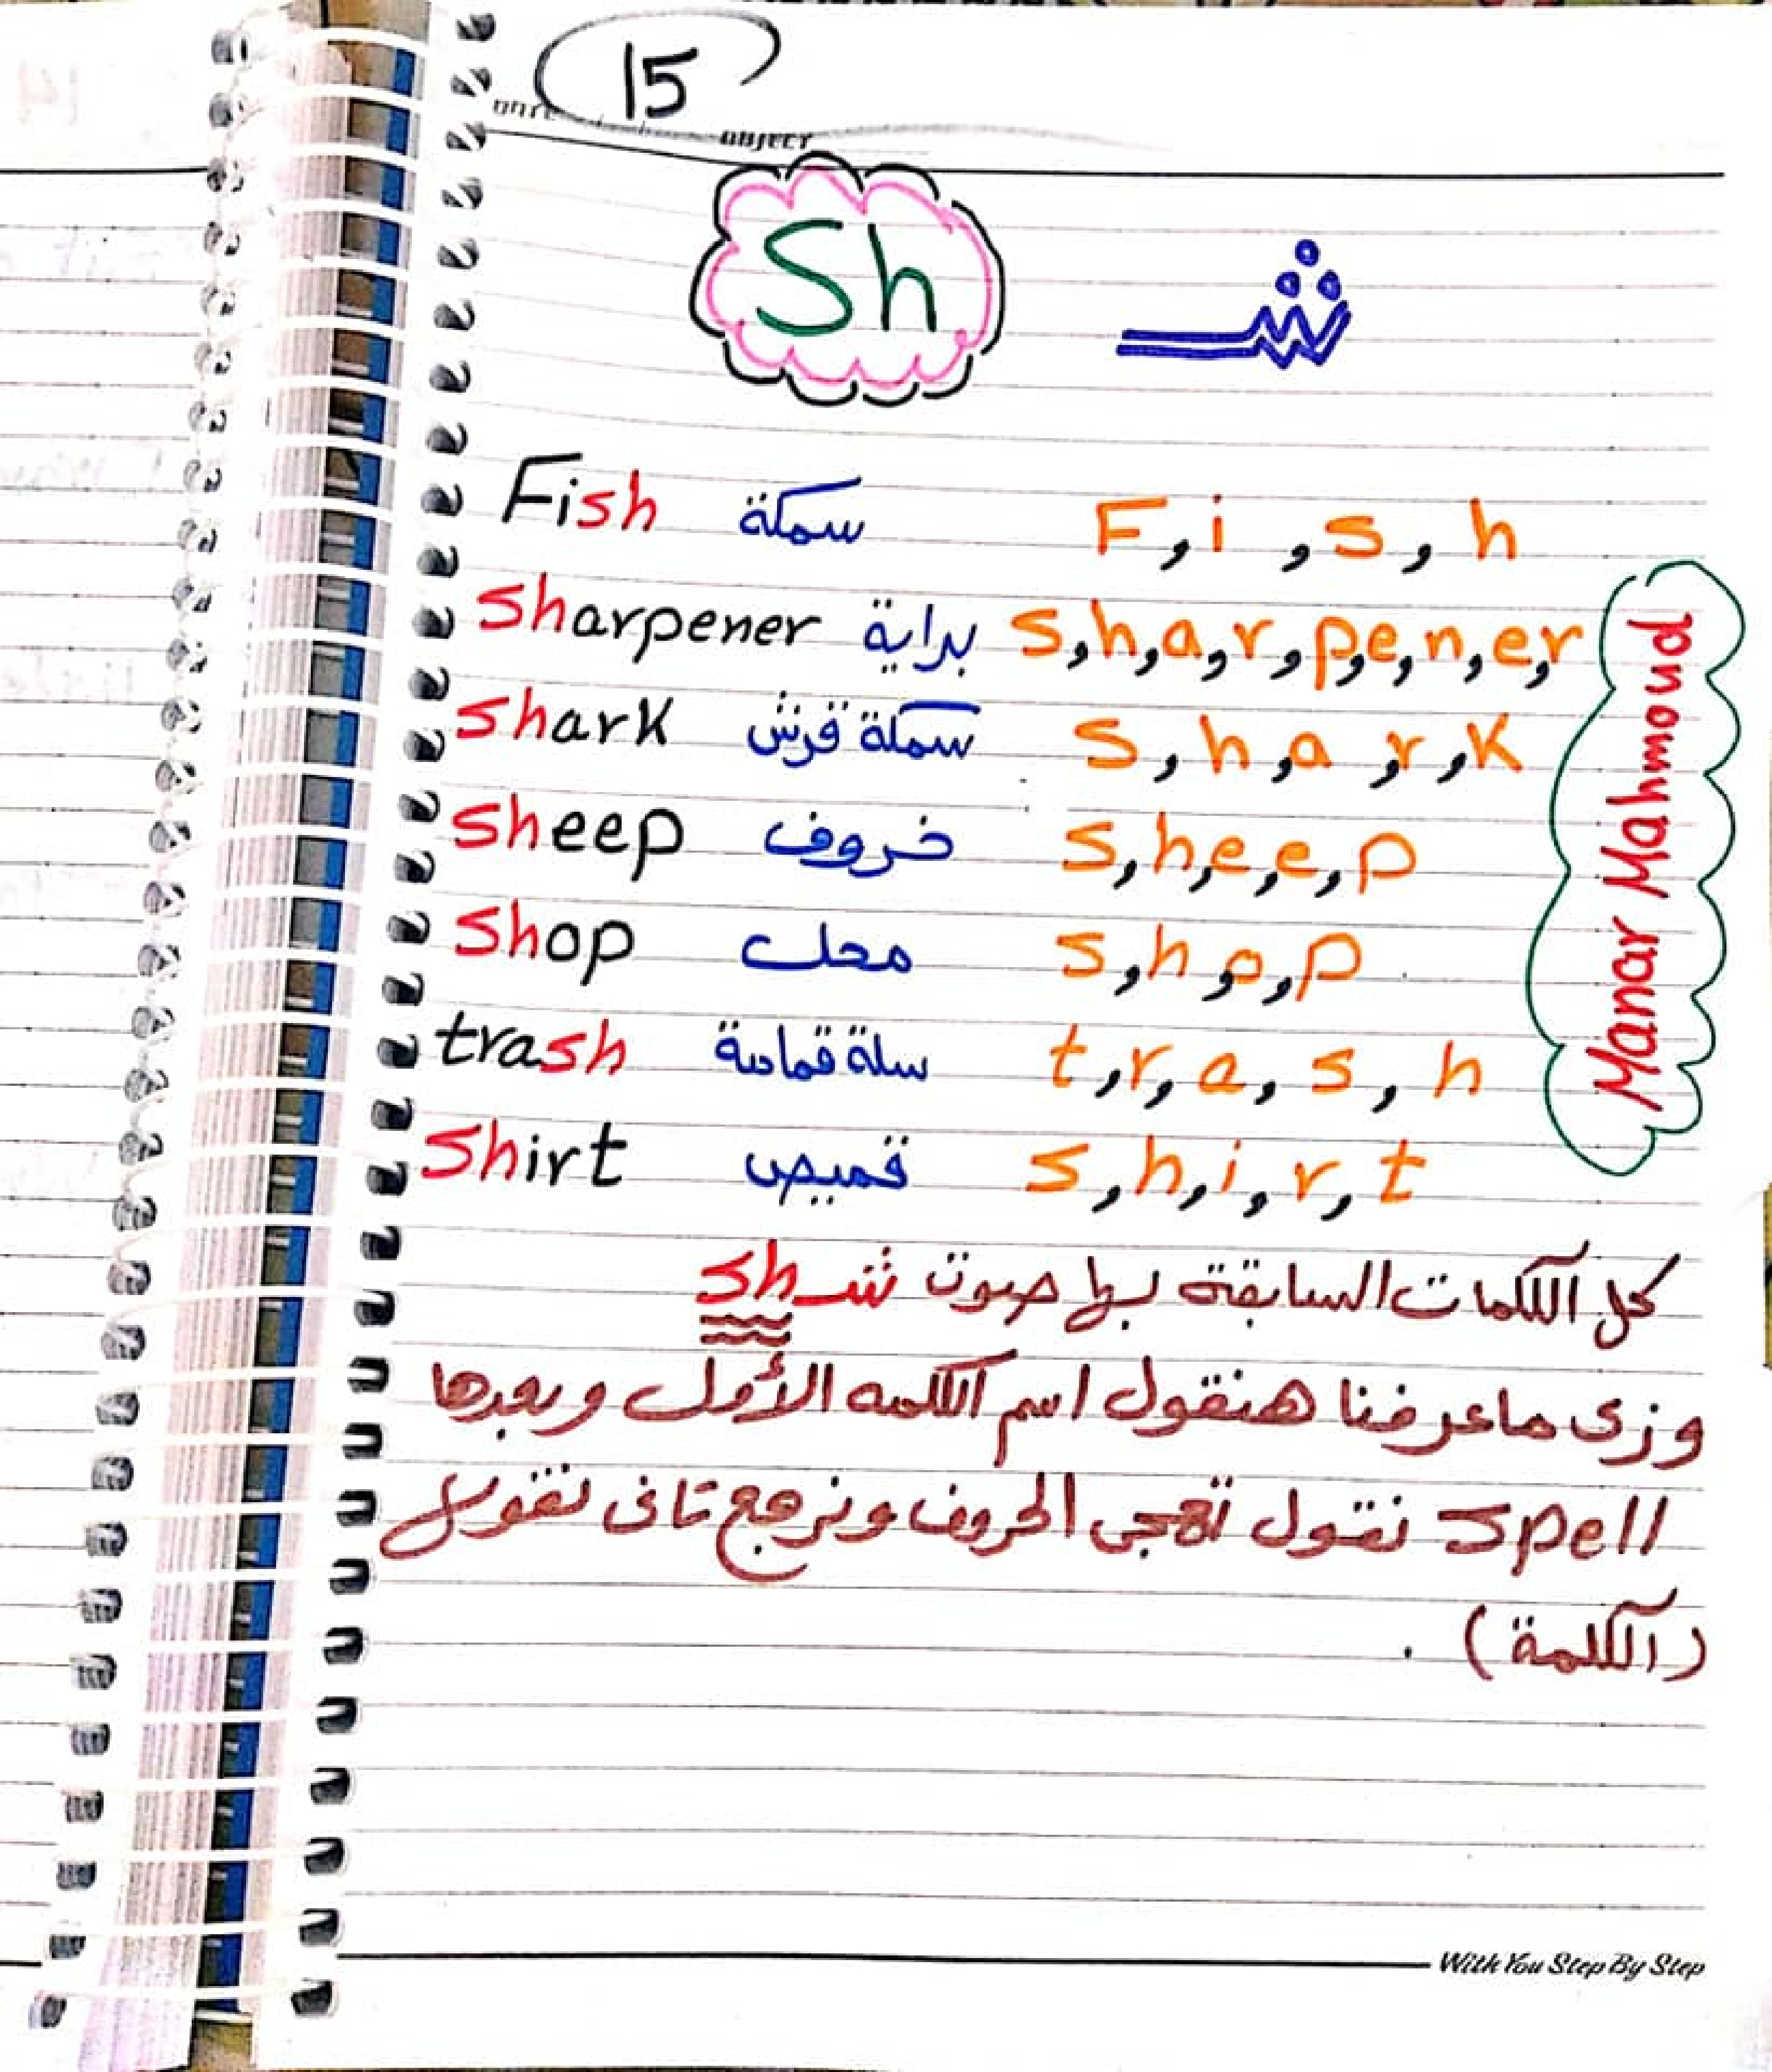 15
DATE
OBJECT
Sh شـ
Fish سمكة F, i, s, h
Sharpener براية s,h,a,r,p,e,n,e,r
Shark سمكة قرش s, h, a, r, k
Sheep خروف s,h,e,e,p
Shop محل s,h,o,p
trash سلة قمامة t,r, a, s, h
Shirt قميص s,h,i,r,t
Manar Mahmoud
كل الكلمات السابقة لها صوت شـ sh
وزى ماعرفنا هنقول اسم الكلمه الأول وبعدها
spell نقول تهجى الحروف ونرجع تانى نقول
(الكلمة) .
With You Step By Step